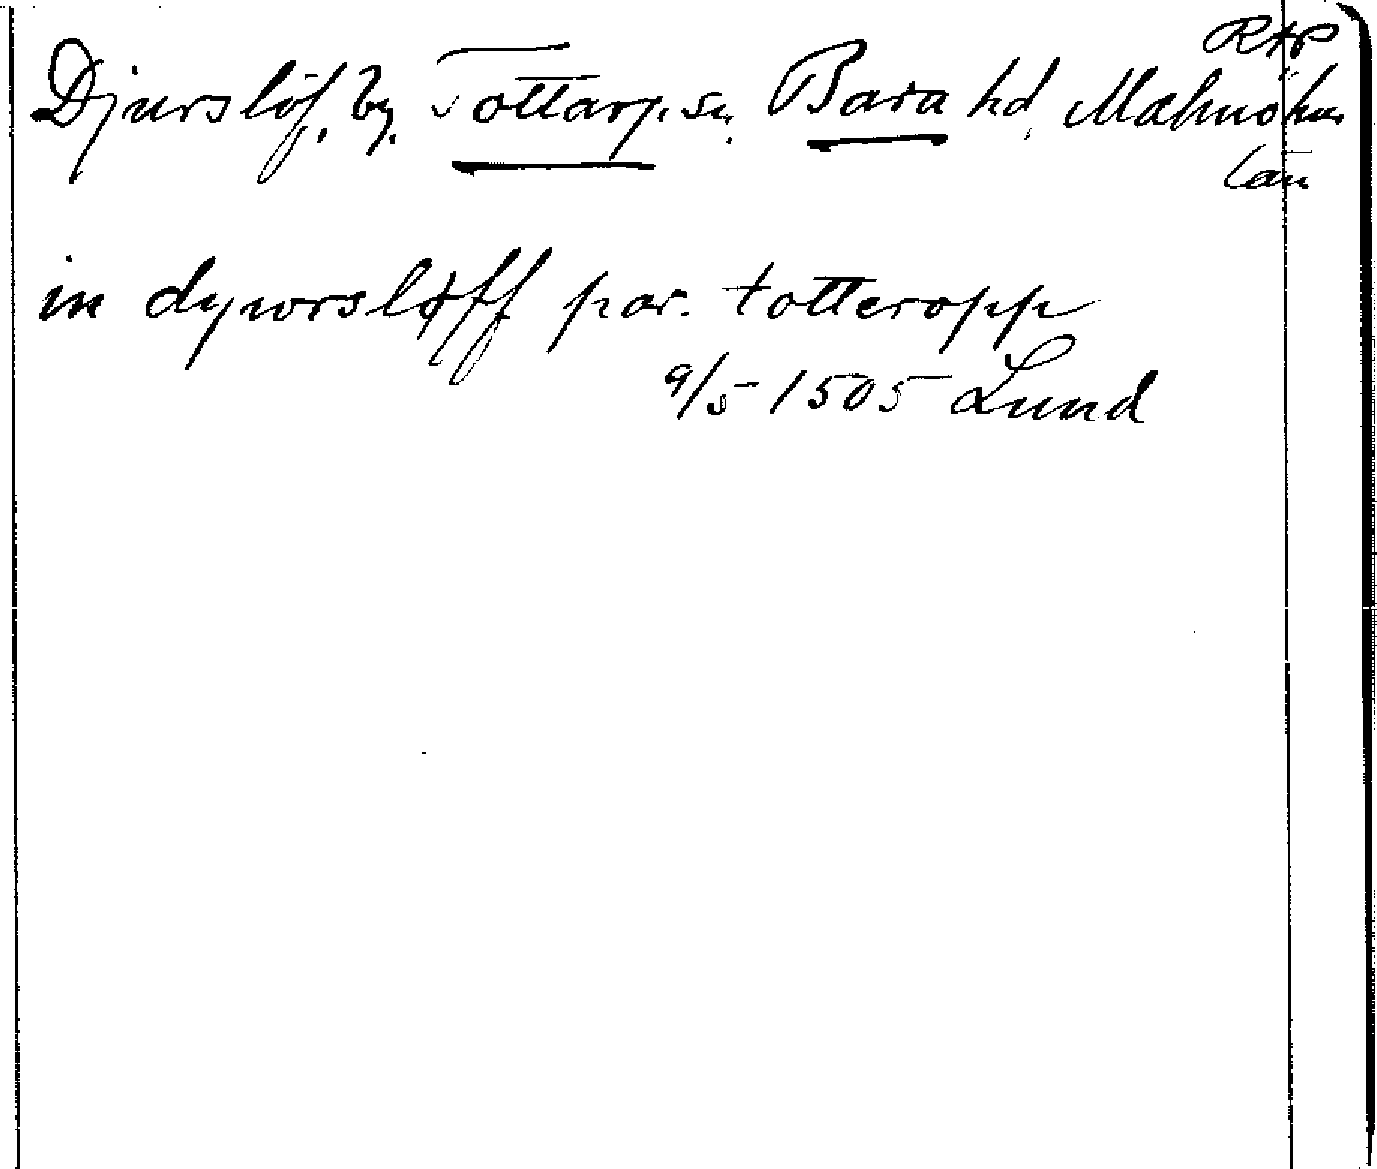 RAP
Djurslöf, by. Tottarp sn. Bara hd, Malmöhus
län
in dywrsløff par. totteropp
9/5 1505 Lund